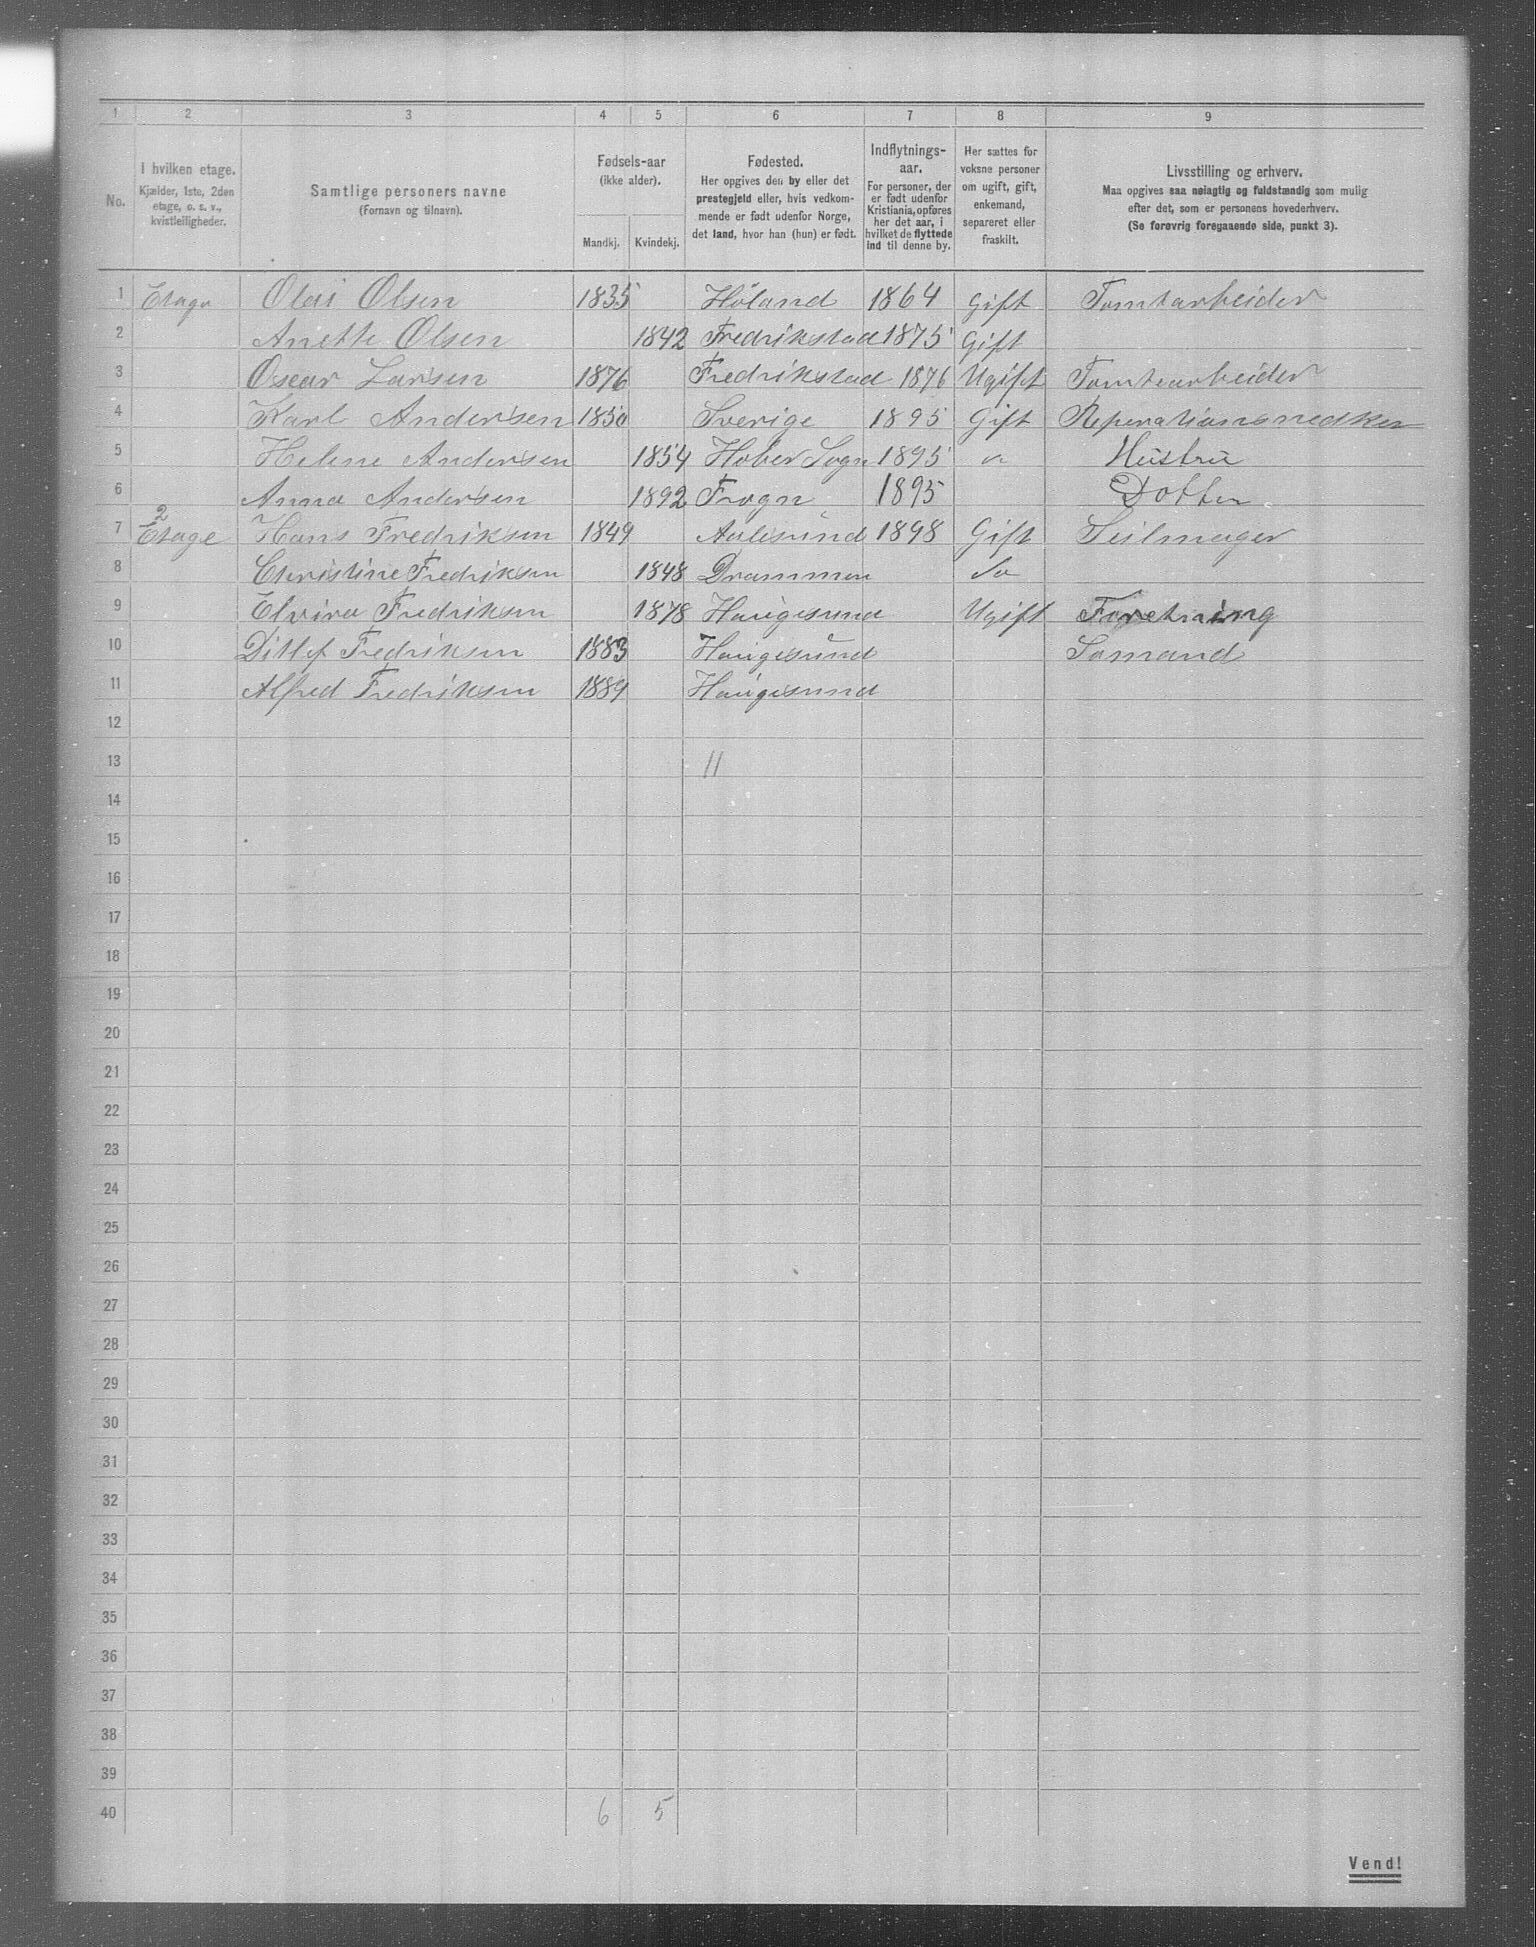 1 2 3 4 5 6 7 8 9
No.
I hvilken etage.
Kjælder, 1ste, 2den
etage, o. s. v.,
kvistleiligheder.
Samtlige personers navne
(Fornavn og tilnavn).
Fødsels-aar
(ikke alder).
Mandkj. Kvindekj.
Fødested.
Her opgives den by eller det
prestegjeld eller, hvis vedkom-
mende er født udenfor Norge,
det land, hvor han (hun) er født.
Indflytnings-
aar.
For personer, der
er født udenfor
Kristiania, opføres
her det aar, i
hvilket de flyttede
ind til denne by.
Her sættes for
voksne personer
om ugift, gift,
enkemand,
separeret eller
fraskilt.
Livsstilling og erhverv.
Maa opgives saa nøiagtig og fuldstændig som mulig
efter det, som er personens hovederhverv.
(Se forøvrig foregaaende side, punkt 3).
1 Etage Olai Olsen 1835 Høland 1864 Gift Tomtarbeider
2 Anette Olsen 1842 Fredrikstad 1875 Gift
3 Oscar Larsen 1876 Fredrikstad 1876 Ugift Tomtearbeider
4 Karl Andersen 1850 Sverige 1895 Gift Reperationsnedker
5 Helene Andersen 1854 Hobøl Sogn 1895 Hustru
6 Anna Andersen 1892 Frogn 1895 Dotter
7 2 Etage Hans Fredriksen 1849 Aalesund 1898 Gift Seilmager
8 Christine Fredriksen 1848 Drammen do
9 Elvira Fredriksen 1878 Haugesund Ugift Foretning
10 Ditlef Fredriksen 1883 Haugesund Sømand
11 Alfred Fredriksen 1889 Haugesund
12
13 11
14
15
16
17
18
19
20
21
22
23
24
25
26
27
28
29
30
31
32
33
34
35
36
37
38
39
40 6 5
Vend!